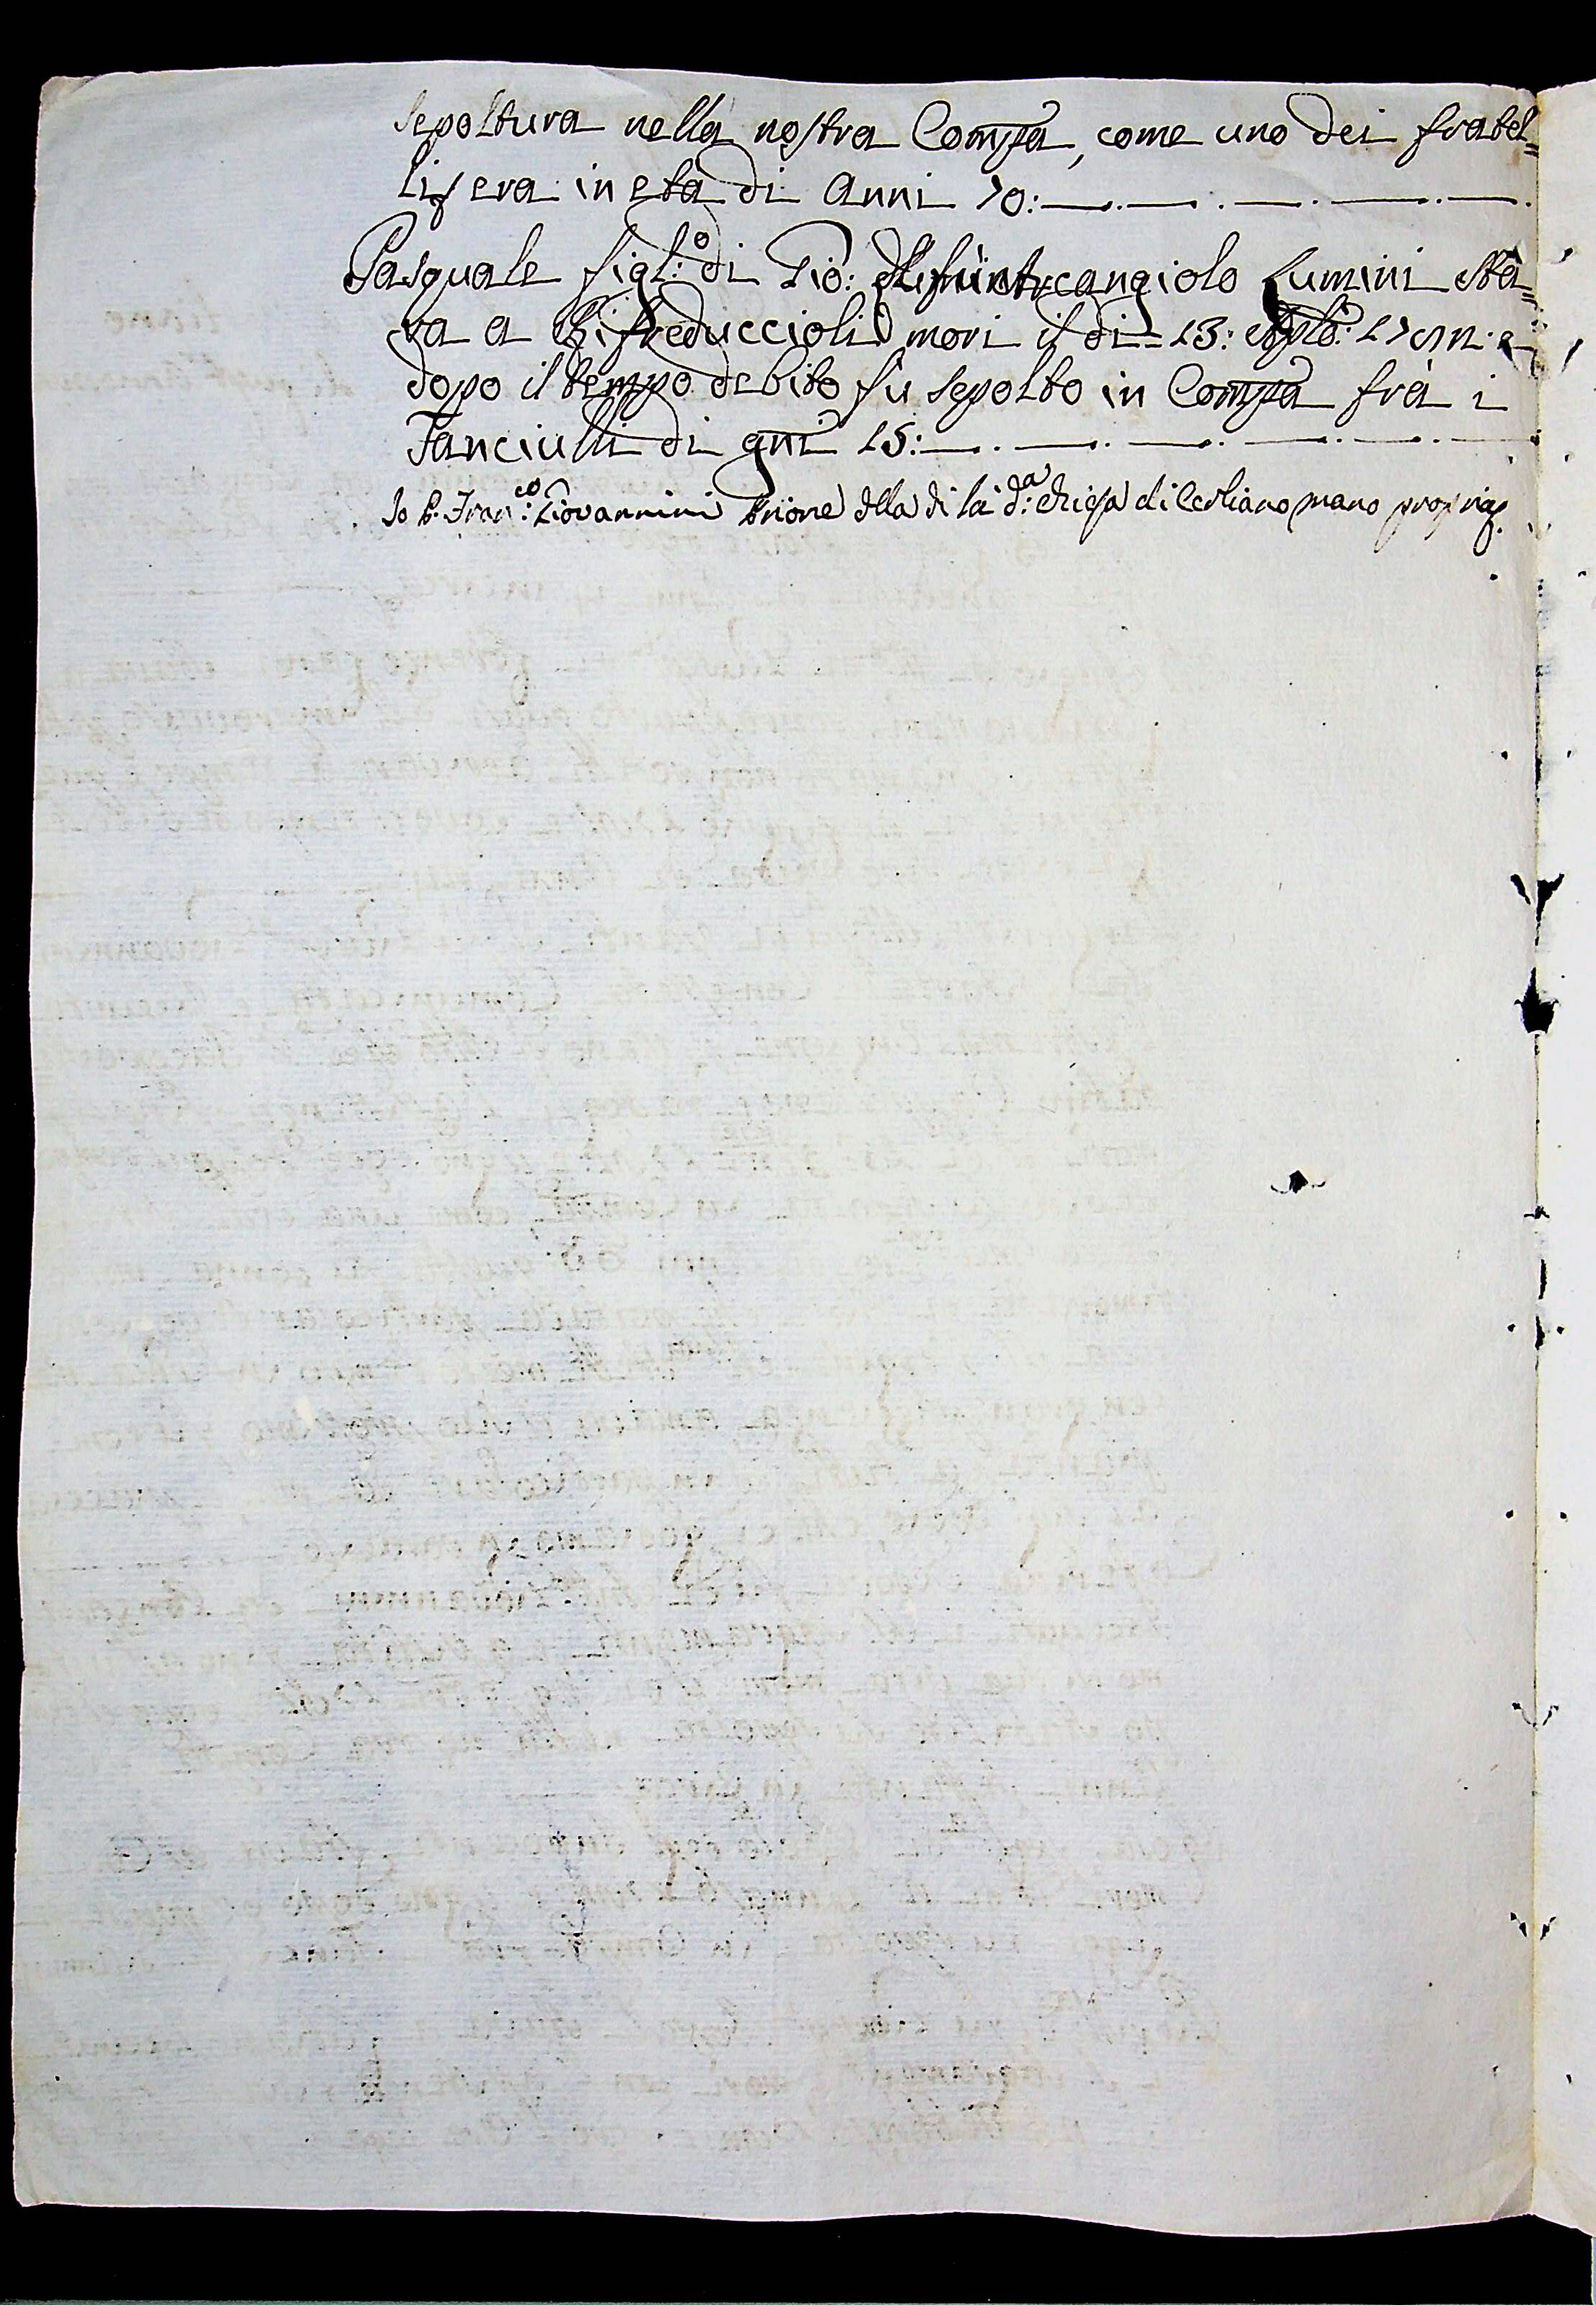 sepoltura nella nostra Compa, come uno dei fratel=
li, era in età di Anni 70:
Pasquale figl:o di Gio: Arcangiolo Lumini sta=
va a morì il dì = 13:
dopo il tempo debito fu sepolto in Compa frà i
Fanciulli di ani 15:
Io P. Fran:co Giovannini Priore della di là d:a Chiesa di Cerliano mano propria